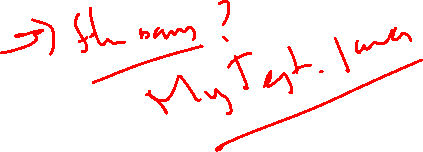 → file name?
MyTest.java